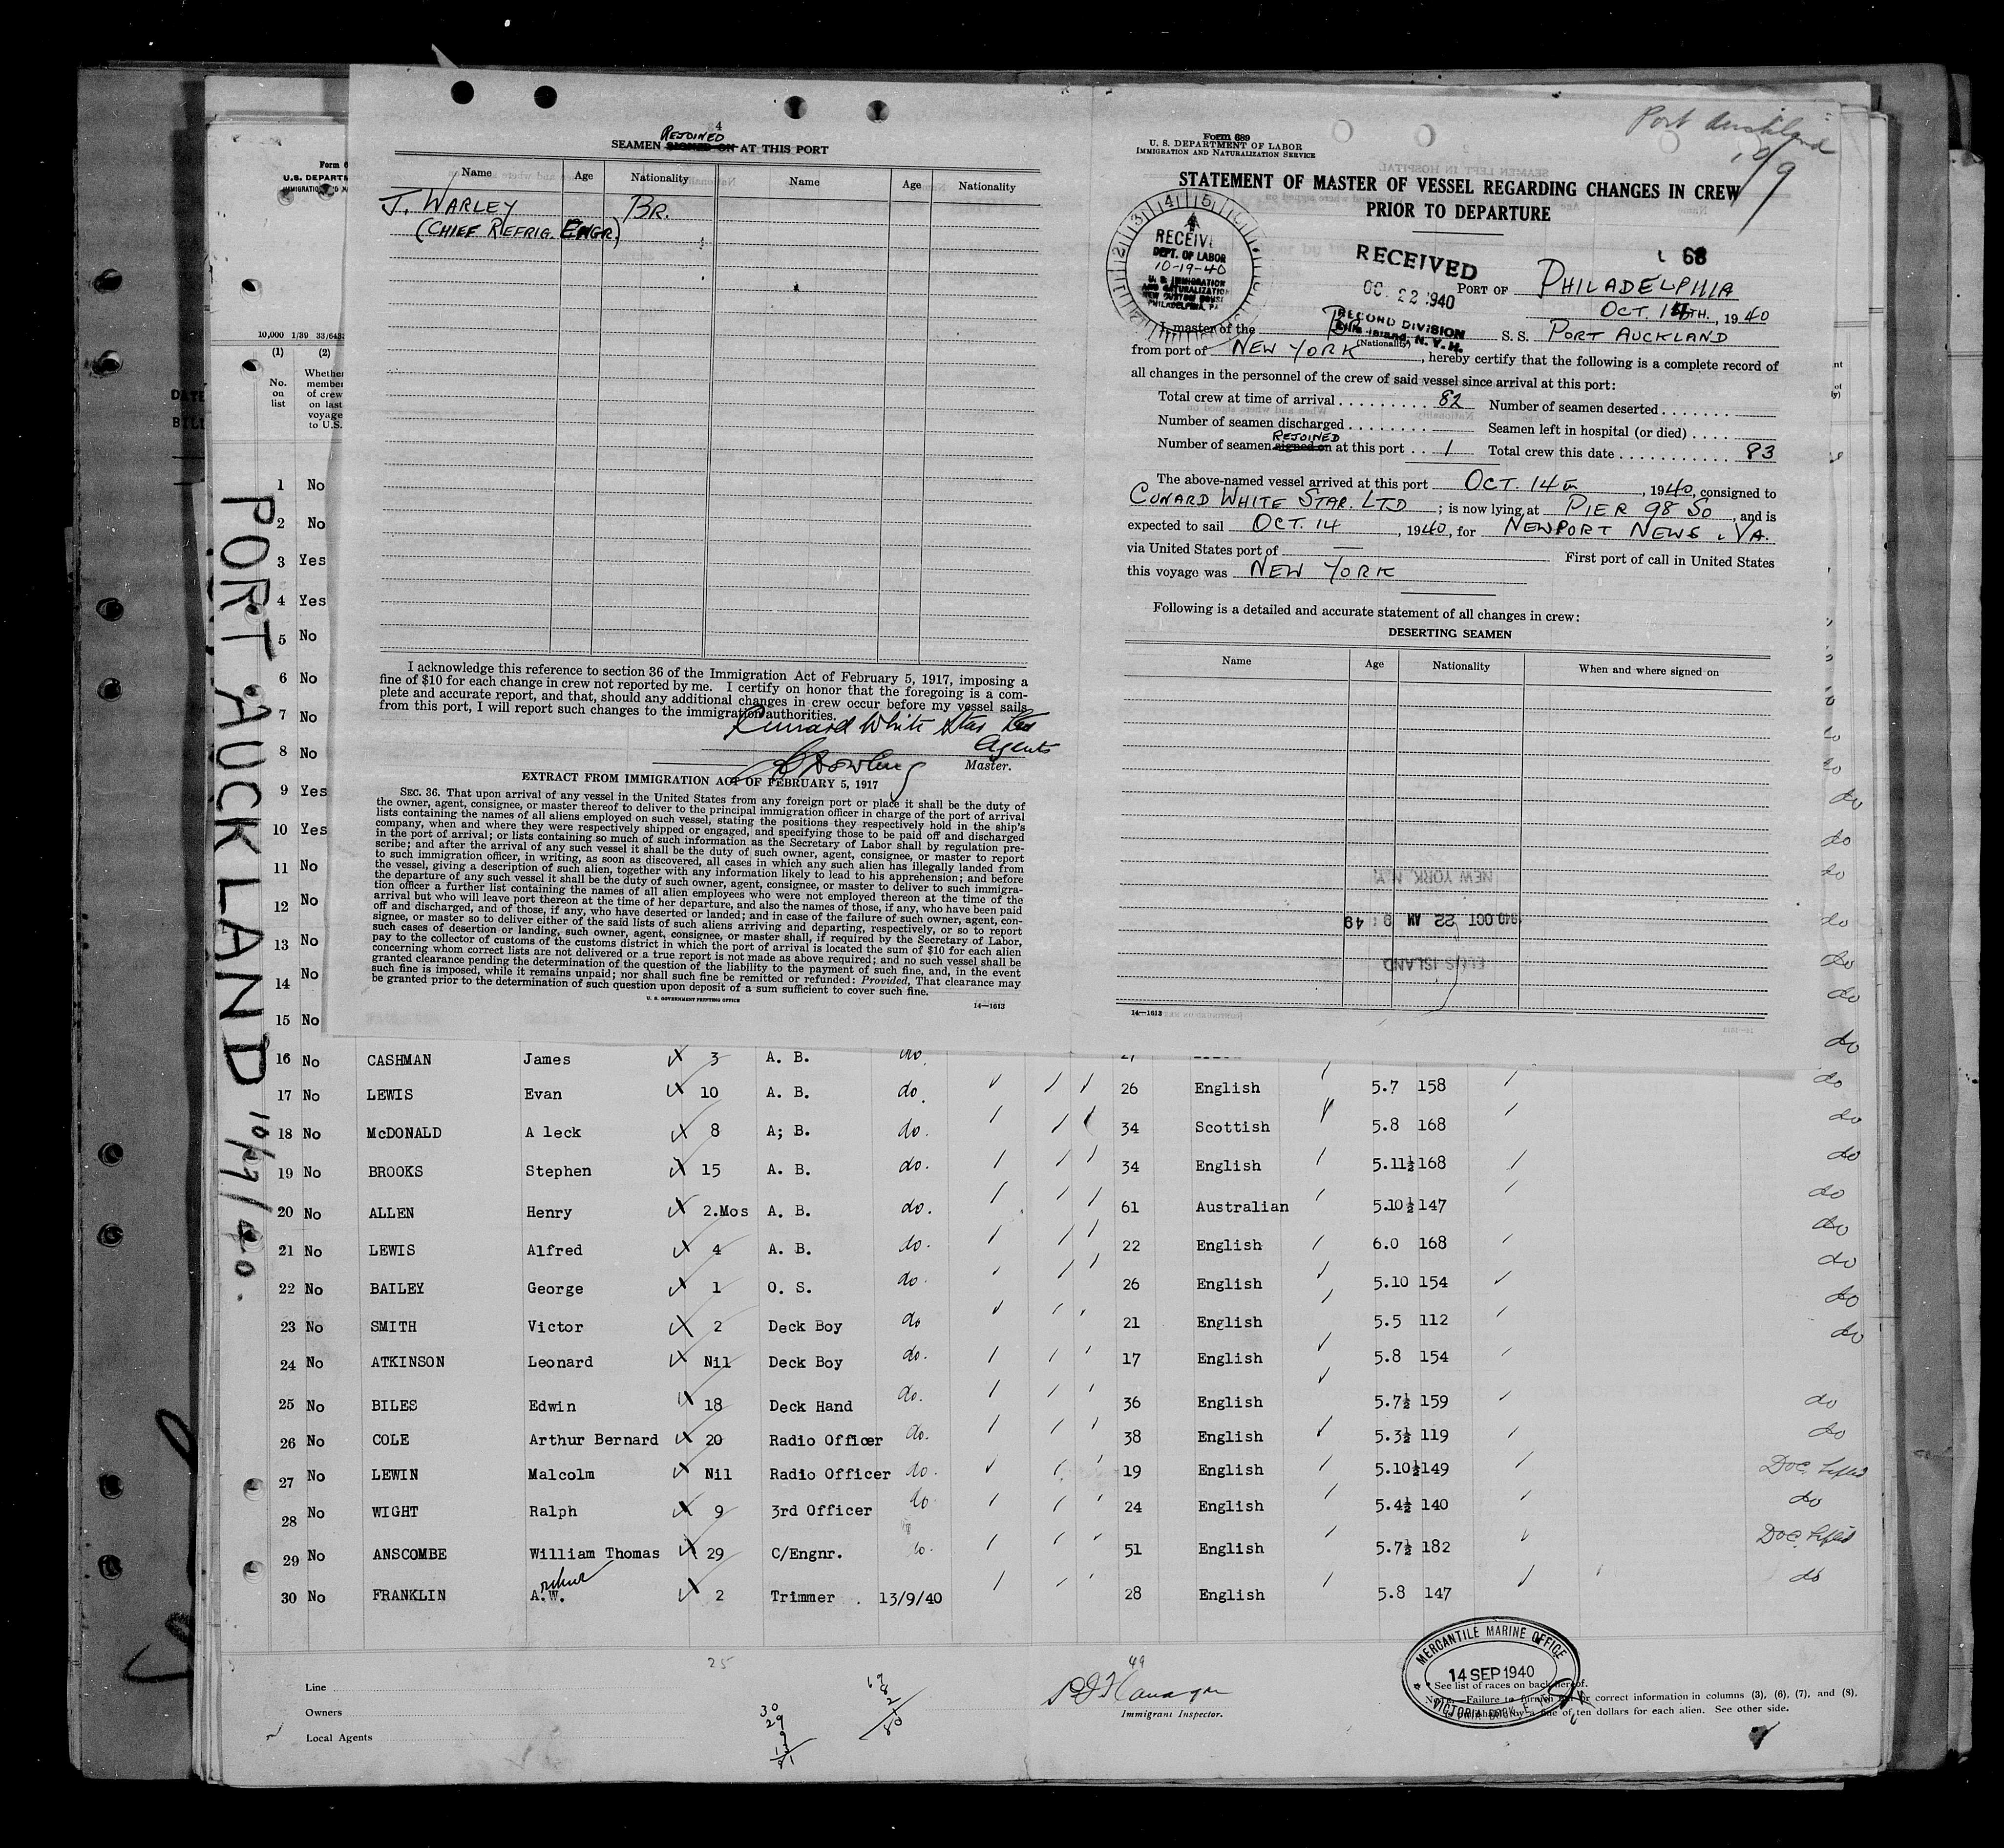 4
REJOINED
SEAMEN SIGNED ON AT THIS PORT
Name Age Nationality Name Age Nationality
J. WARLEY BR.
(CHIEF REFRIG. ENGR)
I acknowledge this reference to section 36 of the Immigration Act of February 5, 1917, imposing a
fine of $10 for each change in crew not reported by me. I certify on honor that the foregoing is a com-
plete and accurate report, and that, should any additional changes in crew occur before my vessel sails
from this port, I will report such changes to the immigration authorities.
Cunard White Star Ltd
Agents
Master.
EXTRACT FROM IMMIGRATION ACT OF FEBRUARY 5, 1917
SEC. 36. That upon arrival of any vessel in the United States from any foreign port or place it shall be the duty of
the owner, agent, consignee, or master thereof to deliver to the principal immigration officer in charge of the port of arrival
lists containing the names of all aliens employed on such vessel, stating the positions they respectively hold in the ship's
company, when and where they were respectively shipped or engaged, and specifying those to be paid off and discharged
in the port of arrival; or lists containing so much of such information as the Secretary of Labor shall by regulation pre-
scribe; and after the arrival of any such vessel it shall be the duty of such owner, agent, consignee, or master to report
to such immigration officer, in writing, as soon as discovered, all cases in which any such alien has illegally landed from
the vessel, giving a description of such alien, together with any information likely to lead to his apprehension; and before
the departure of any such vessel it shall be the duty of such owner, agent, consignee, or master to deliver to such immigra-
tion officer a further list containing the names of all alien employees who were not employed thereon at the time of the
arrival but who will leave port thereon at the time of her departure, and also the names of those, if any, who have been paid
off and discharged, and of those, if any, who have deserted or landed; and in case of the failure of such owner, agent, con-
signee, or master so to deliver either of the said lists of such aliens arriving and departing, respectively, or so to report
such cases of desertion or landing, such owner, agent, consignee, or master shall, if required by the Secretary of Labor,
pay to the collector of customs of the customs district in which the port of arrival is located the sum of $10 for each alien
concerning whom correct lists are not delivered or a true report is not made as above required; and no such vessel shall be
granted clearance pending the determination of the question of the liability to the payment of such fine, and, in the event
such fine is imposed, while it remains unpaid; nor shall such fine be remitted or refunded: Provided, That clearance may
be granted prior to the determination of such question upon deposit of a sum sufficient to cover such fine.
U. S. GOVERNMENT PRINTING OFFICE 14—1613
Port Auckland
10/9
Form 689
U. S. DEPARTMENT OF LABOR
IMMIGRATION AND NATURALIZATION SERVICE
STATEMENT OF MASTER OF VESSEL REGARDING CHANGES IN CREW
PRIOR TO DEPARTURE
DEPT. OF LABOR
10-19-40
U. S. IMMIGRATION
AND NATURALIZATION
NEW CUSTOM HOUSE
PHILADELPHIA, PA
RECEIVED
22 1940
RECORD DIVISION
Ellis Island, N. Y. H.
68
PORT OF PHILADELPHIA
OCT. 14TH., 1940
I, master of the BR (Nationality) S. S. PORT AUCKLAND
from port of NEW YORK, hereby certify that the following is a complete record of
all changes in the personnel of the crew of said vessel since arrival at this port:
Total crew at time of arrival 82 Number of seamen deserted
Number of seamen discharged Seamen left in hospital (or died)
REJOINED
Number of seamen signed on at this port 1 Total crew this date 83
The above-named vessel arrived at this port OCT. 14th, 1940, consigned to
CUNARD WHITE STAR. LTD; is now lying at PIER 98 SO, and is
expected to sail OCT. 14, 1940, for NEWPORT NEWS, VA.
via United States port of — First port of call in United States
this voyage was NEW YORK
Following is a detailed and accurate statement of all changes in crew:
DESERTING SEAMEN
Name Age Nationality When and where signed on
NEW YORK, N.Y.
1940 OCT 22 AM 9:49
ELLIS ISLAND
14—1613
PORT AUCKLAND 10/9/40.
Form 6
U.S. DEPARTM
10,000 1/39
(1) (2)
No. on list
Whether member of crew on last voyage to U.S.
1 No
2 No
3 Yes
4 Yes
5 No
6 No
7 No
8 No
9 Yes
10 Yes
11 No
12 No
13 No
14 No
15 No
16 No CASHMAN James 3 A. B. do
17 No LEWIS Evan 10 A. B. do 26 English 5.7 158 do
18 No McDONALD A leck 8 A; B. do. 34 Scottish 5.8 168 do
19 No BROOKS Stephen 15 A. B. do. 34 English 5.11½ 168 do
20 No ALLEN Henry 2.Mos A. B. do. 61 Australian 5.10½ 147 do
21 No LEWIS Alfred 4 A. B. do. 22 English 6.0 168 do
22 No BAILEY George 1 O. S. do. 26 English 5.10 154 do
23 No SMITH Victor 2 Deck Boy do 21 English 5.5 112 do
24 No ATKINSON Leonard Nil Deck Boy do. 17 English 5.8 154 do
25 No BILES Edwin 18 Deck Hand do. 36 English 5.7½ 159 do
26 No COLE Arthur Bernard 20 Radio Officer do. 38 English 5.3½ 119 do
27 No LEWIN Malcolm Nil Radio Officer do. 19 English 5.10½ 149 Doc. Lifted
28 No WIGHT Ralph 9 3rd Officer do. 24 English 5.4½ 140 do
29 No ANSCOMBE William Thomas 29 C/Engnr. do. 51 English 5.7½ 182 Doc. Lifted
30 No FRANKLIN A.W. 2 Trimmer 13/9/40 28 English 5.8 147 do
25
49
Line
Owners
Local Agents
30
29
Immigrant Inspector.
MERCANTILE MARINE OFFICE
14 SEP 1940
VICTORIA DOCK, E.
* See list of races on back hereof.
Note.—Failure to furnish full or correct information in columns (3), (6), (7), and (8),
is punishable by a fine of ten dollars for each alien. See other side.